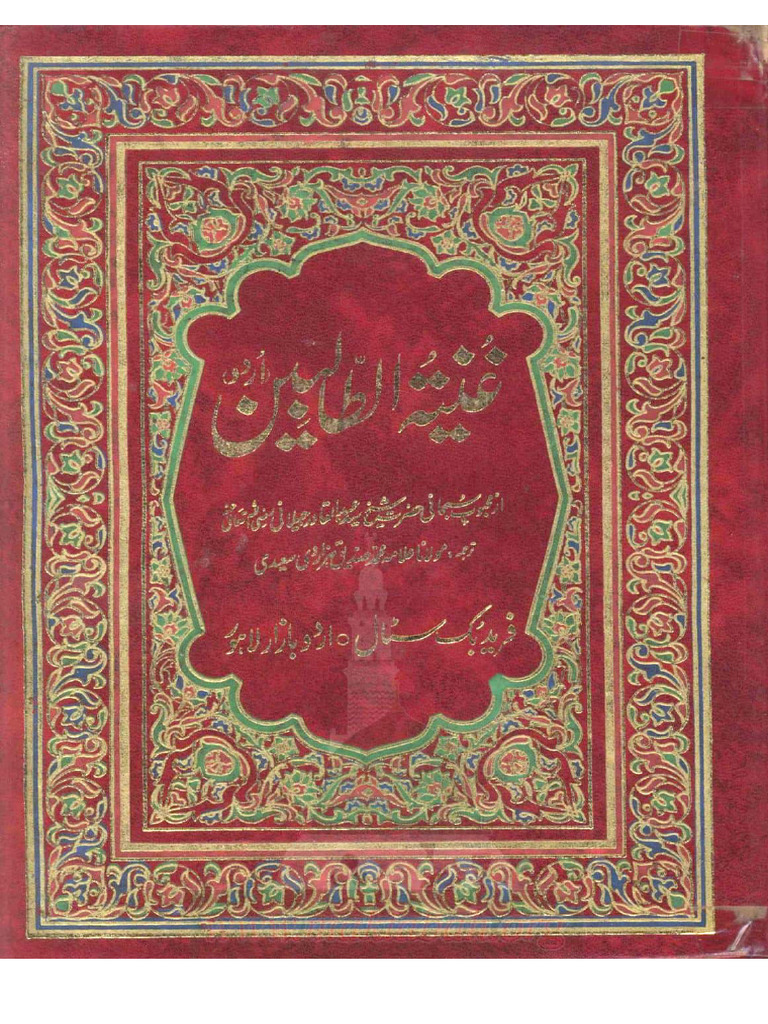 غُنیۃُ الطّالبِین اُردو
از محبوب سبحانی حضرت شیخ سید عبدالقادر جیلانی رضی اللہ تعالیٰ عنہ
ترجمہ: مولانا علامہ محمد صدیق ہزاروی سعیدی
فرید بک سٹال ○ اردو بازار لاہور